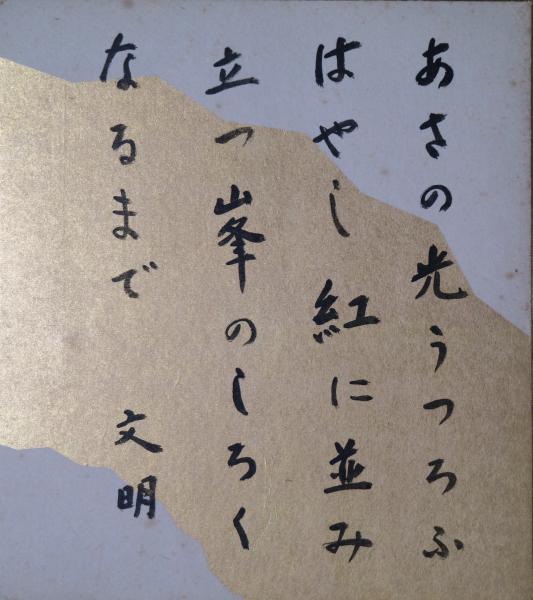 あさの光うつろふ
はやし紅に並み
立つ峯のしろく
なるまで
文明